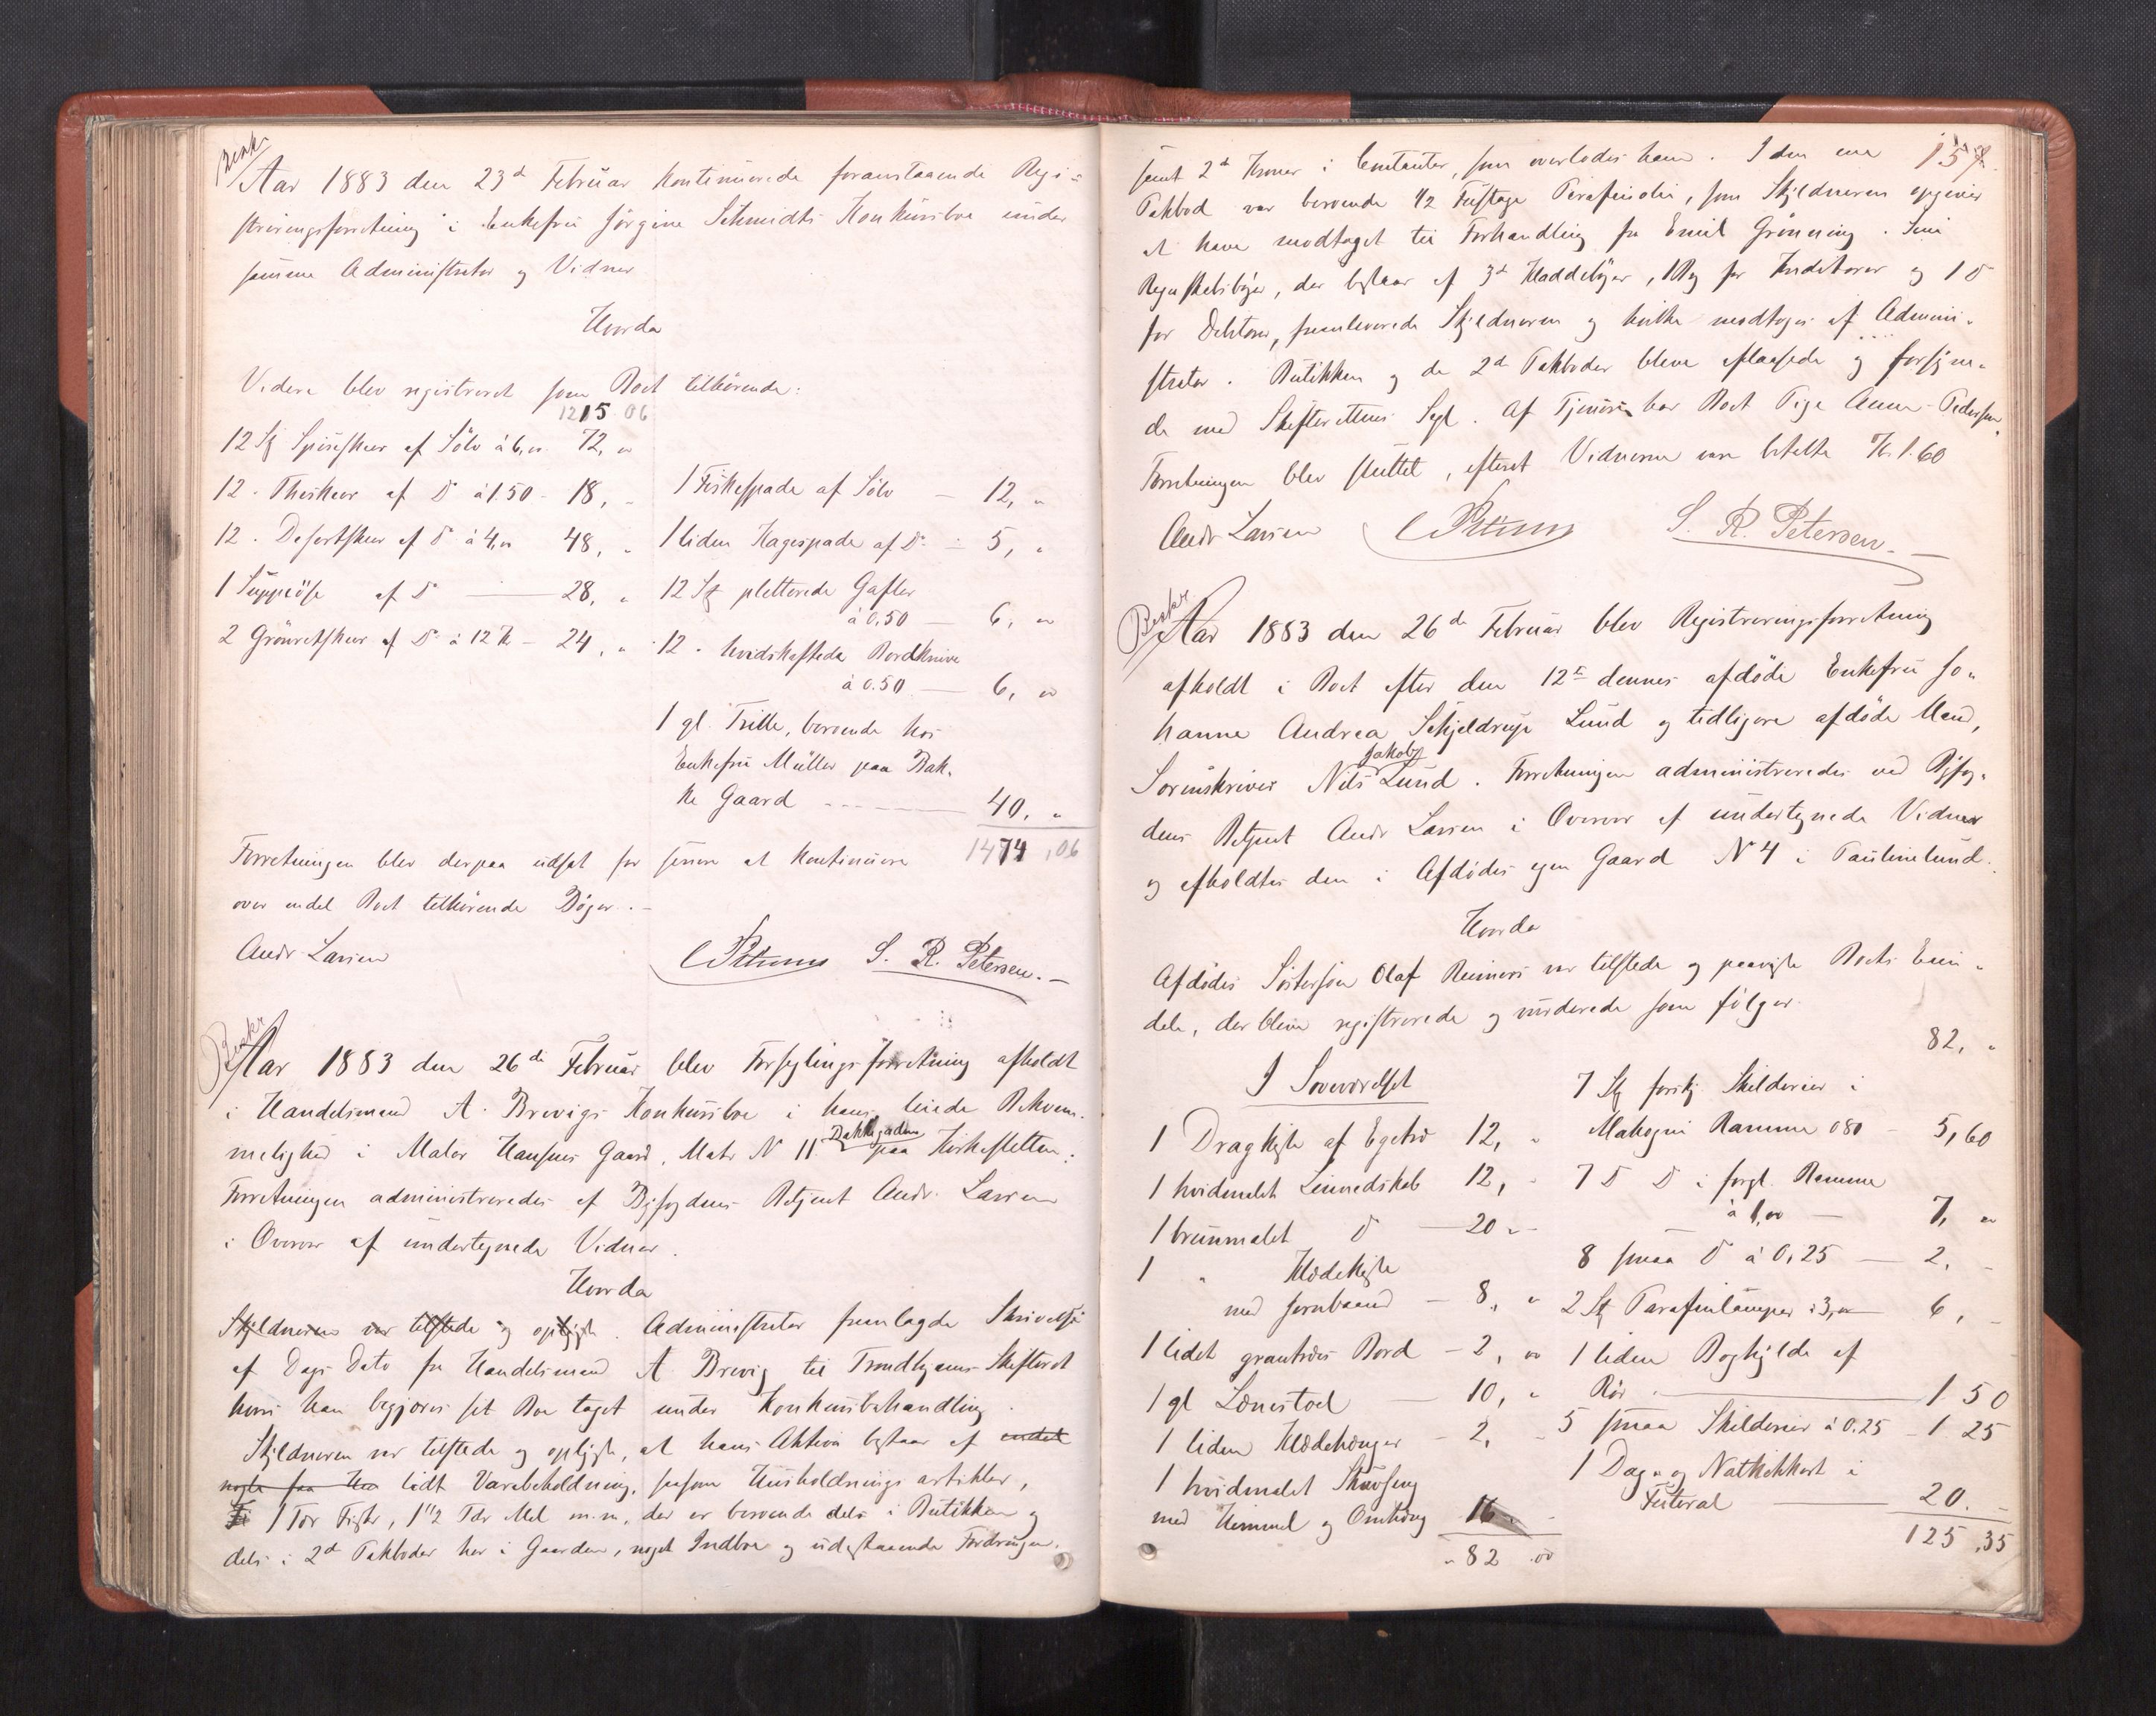 Beskr.
Aar 1883 den 23d Februar kontinuerede foranstaaende Regi=
streringsforretning i Enkefru Jørgine Schmidts Konkursbo under
samme Administrator og Vidner
Hvorda
Videre blev registreret som Boet tilhørende:
1215 06
12 St Spiseskeer af Sølv à 6,00. 72, 00
12 - Theskeer af Do à 1.50 - 18, „
12 - Desertskeer af Do à 4,00 48, „
1 Suppeøse af Do 28, „
2 Grønretskeer af Do à 12 Kr - 24, „
1 Fiskespade af Sølv - 12, „
1 liden Kagespade af Do - 5, „
12 St pletterede Gafler
à 0,50 - 6, 00
12 - hvidskaftede Bordknive
à 0.50 - 6, 00
1 gl. Trille, beroende hos
Enkefru Müller paa Bak-
ke Gaard - 40, „
1474,06
Forretningen blev derpaa udsat for senere at kontinuere
over endel Boet tilhørende Bøger. -
Andr Larsen
S. R. Petersen. -
Beskr
Aar 1883 den 26de Februar blev Forseglingsforretning afholdt
i Handelsmand A. Brevigs Konkursbo i hans leiede Bekvem-
melighed i Maler Hansens Gaard, Matr N 11 Bakkegaden paa Kirkesletten.
Forretningen administreredes af Byfogdens Betjent Andr. Larsen
i Overvær af undertegnede Vidner.
Hvorda
Skyldneren var tilstede og oplyste. Administrator fremlagde Skrivelse
af Dags Dato fra Handelsmand A Brevig til Trondhjems Skifteret
hvori han begjærer sit Bo taget under Konkursbehandling.
Skyldneren var tilstede og oplyste, at hans Aktiva bestaar af endel
nogle faa lidt Varebeholdning, saasom Husholdningsartikler,
1 Tdr Fisk, 1 1/2 Tdr Mel m.m. der er beroende dels i Butikken og
dels i 2de Pakboder her i Gaarden, noget Indbo og udestaaende Fordringer,
157.
samt 2de Kroner i Contanter, som overlodes ham. I den ene
Pakbod var beroende 1/2 Fustage Parafinolie, som Skyldneren opgiver
at have modtaget til Forhandling fra Emil Grønning. Sine
Regnskabsbøger, der bestaar af 3de Kladdebøger, 1 Bog for Kreditorer og 1 Do
for Debitorer, fremleverede Skyldneren og hvilke modtoges af Admini-
strator. Butikken og de 2de Pakboder bleve aflaasede og forsyne-
de med Skifterettens Segl. Af Tjenere har Boet Pige Anne Pedersen.
Forretningen blev sluttet, efterat Vidnerne vare betalte Kr. 1.60
Andr Larsen
S. R. Petersen. -
Beskr.
Aar 1883 den 26de Februar blev Registreringsforretning
afholdt i Boet efter den 12te dennes afdøde Enkefru Jo-
hanne Andrea Schjeldrup Lund og tidligere afdøde Mand,
Sorenskriver Nils Jakob Lund. Forretningen administreredes ved Byfog-
dens Betjent Andr Larsen i Overvær af undertegnede Vidner
og afholdtes den i Afdødes egen Gaard N 4 i Paulinelund.
Hvorda
Afdødes Søstersøn Olaf Reimers var tilstede og paaviste Boets Eien-
dele, der bleve registrerede og vurderede som følger.
I Soveværelset
1 Dragkiste af Egetræ 12, „
1 hvidmalet Linnedskab 12, „
1 brunmalet Do - 20 „
1 „ Klædekiste
med Jernbaand - 8, „
1 lidet grantræes Bord - 2, 00
1 gl Lænestol - 10, „
1 liden Klædehænger - 2, „
1 hvidmalet Skuvseng
med Himmel og Omhæng 16 „
„ 82 .00
82, „
7 St forskj. Skilderier i
Mahogni Ramme 080 - 5,60
7 Do Do i forgl. Ramme
à 1,00 - 7, 00
8 smaa Do à 0,25 - 2, „
2 St Parafinlamper à 3,00 - 6, „
1 liden Boghylde af
Rør - 1 50
5 smaa Skilderier à 0.25 - 1 25
1 Dag- og Natkikkert i
Futeral - 20. „
125,35